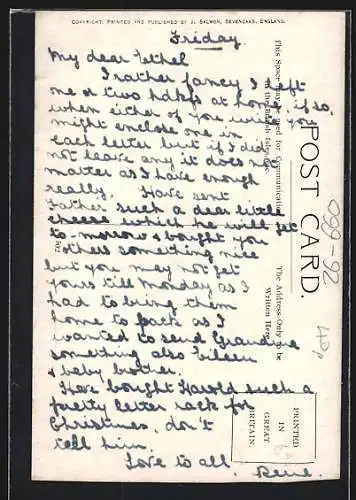 COPYRIGHT. PRINTED AND PUBLISHED BY J. SALMON, SEVENOAKS, ENGLAND.
Friday
My dear Ethel
I rather fancy I left
one or two hdkfs at home, if so,
when either of you write you
might enclose one in
each letter but if I did
not leave any it does not
matter as I have enough
really. Have sent
Father such a dear little
cheese which he will get
to-morrow & bought you
others something nice
but you may not get
yours till Monday as I
had to bring them
home to pack as I
wanted to send Grandma
something also Eileen
& baby brother.
Have bought Harold such a
pretty letter rack for
Christmas, don't
tell him.
Love to all. Rene.
This Space may be used for Communication
in the British Isles
POST CARD.
The Address Only to be
Written Here
PRINTED
IN
GREAT
BRITAIN.